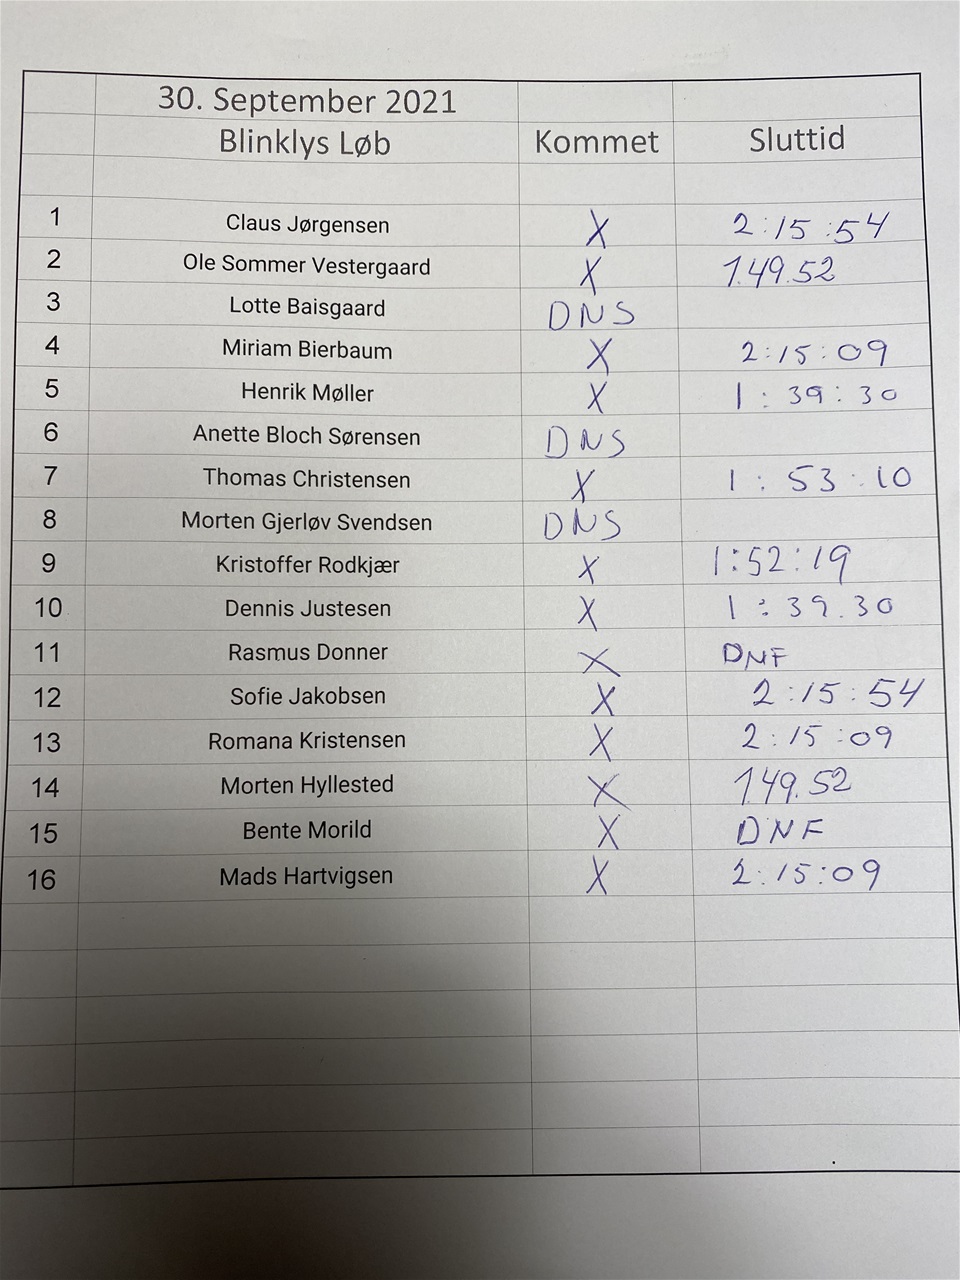 30. September 2021
Blinklys Løb Kommet Sluttid
1 Claus Jørgensen X 2:15:54
2 Ole Sommer Vestergaard X 1.49.52
3 Lotte Baisgaard DNS
4 Miriam Bierbaum X 2:15:09
5 Henrik Møller X 1:39:30
6 Anette Bloch Sørensen DNS
7 Thomas Christensen X 1:53:10
8 Morten Gjerløv Svendsen DNS
9 Kristoffer Rodkjær X 1:52:19
10 Dennis Justesen X 1:39.30
11 Rasmus Donner X DNF
12 Sofie Jakobsen X 2:15:54
13 Romana Kristensen X 2:15:09
14 Morten Hyllested X 1.49.52
15 Bente Morild X DNF
16 Mads Hartvigsen X 2:15:09